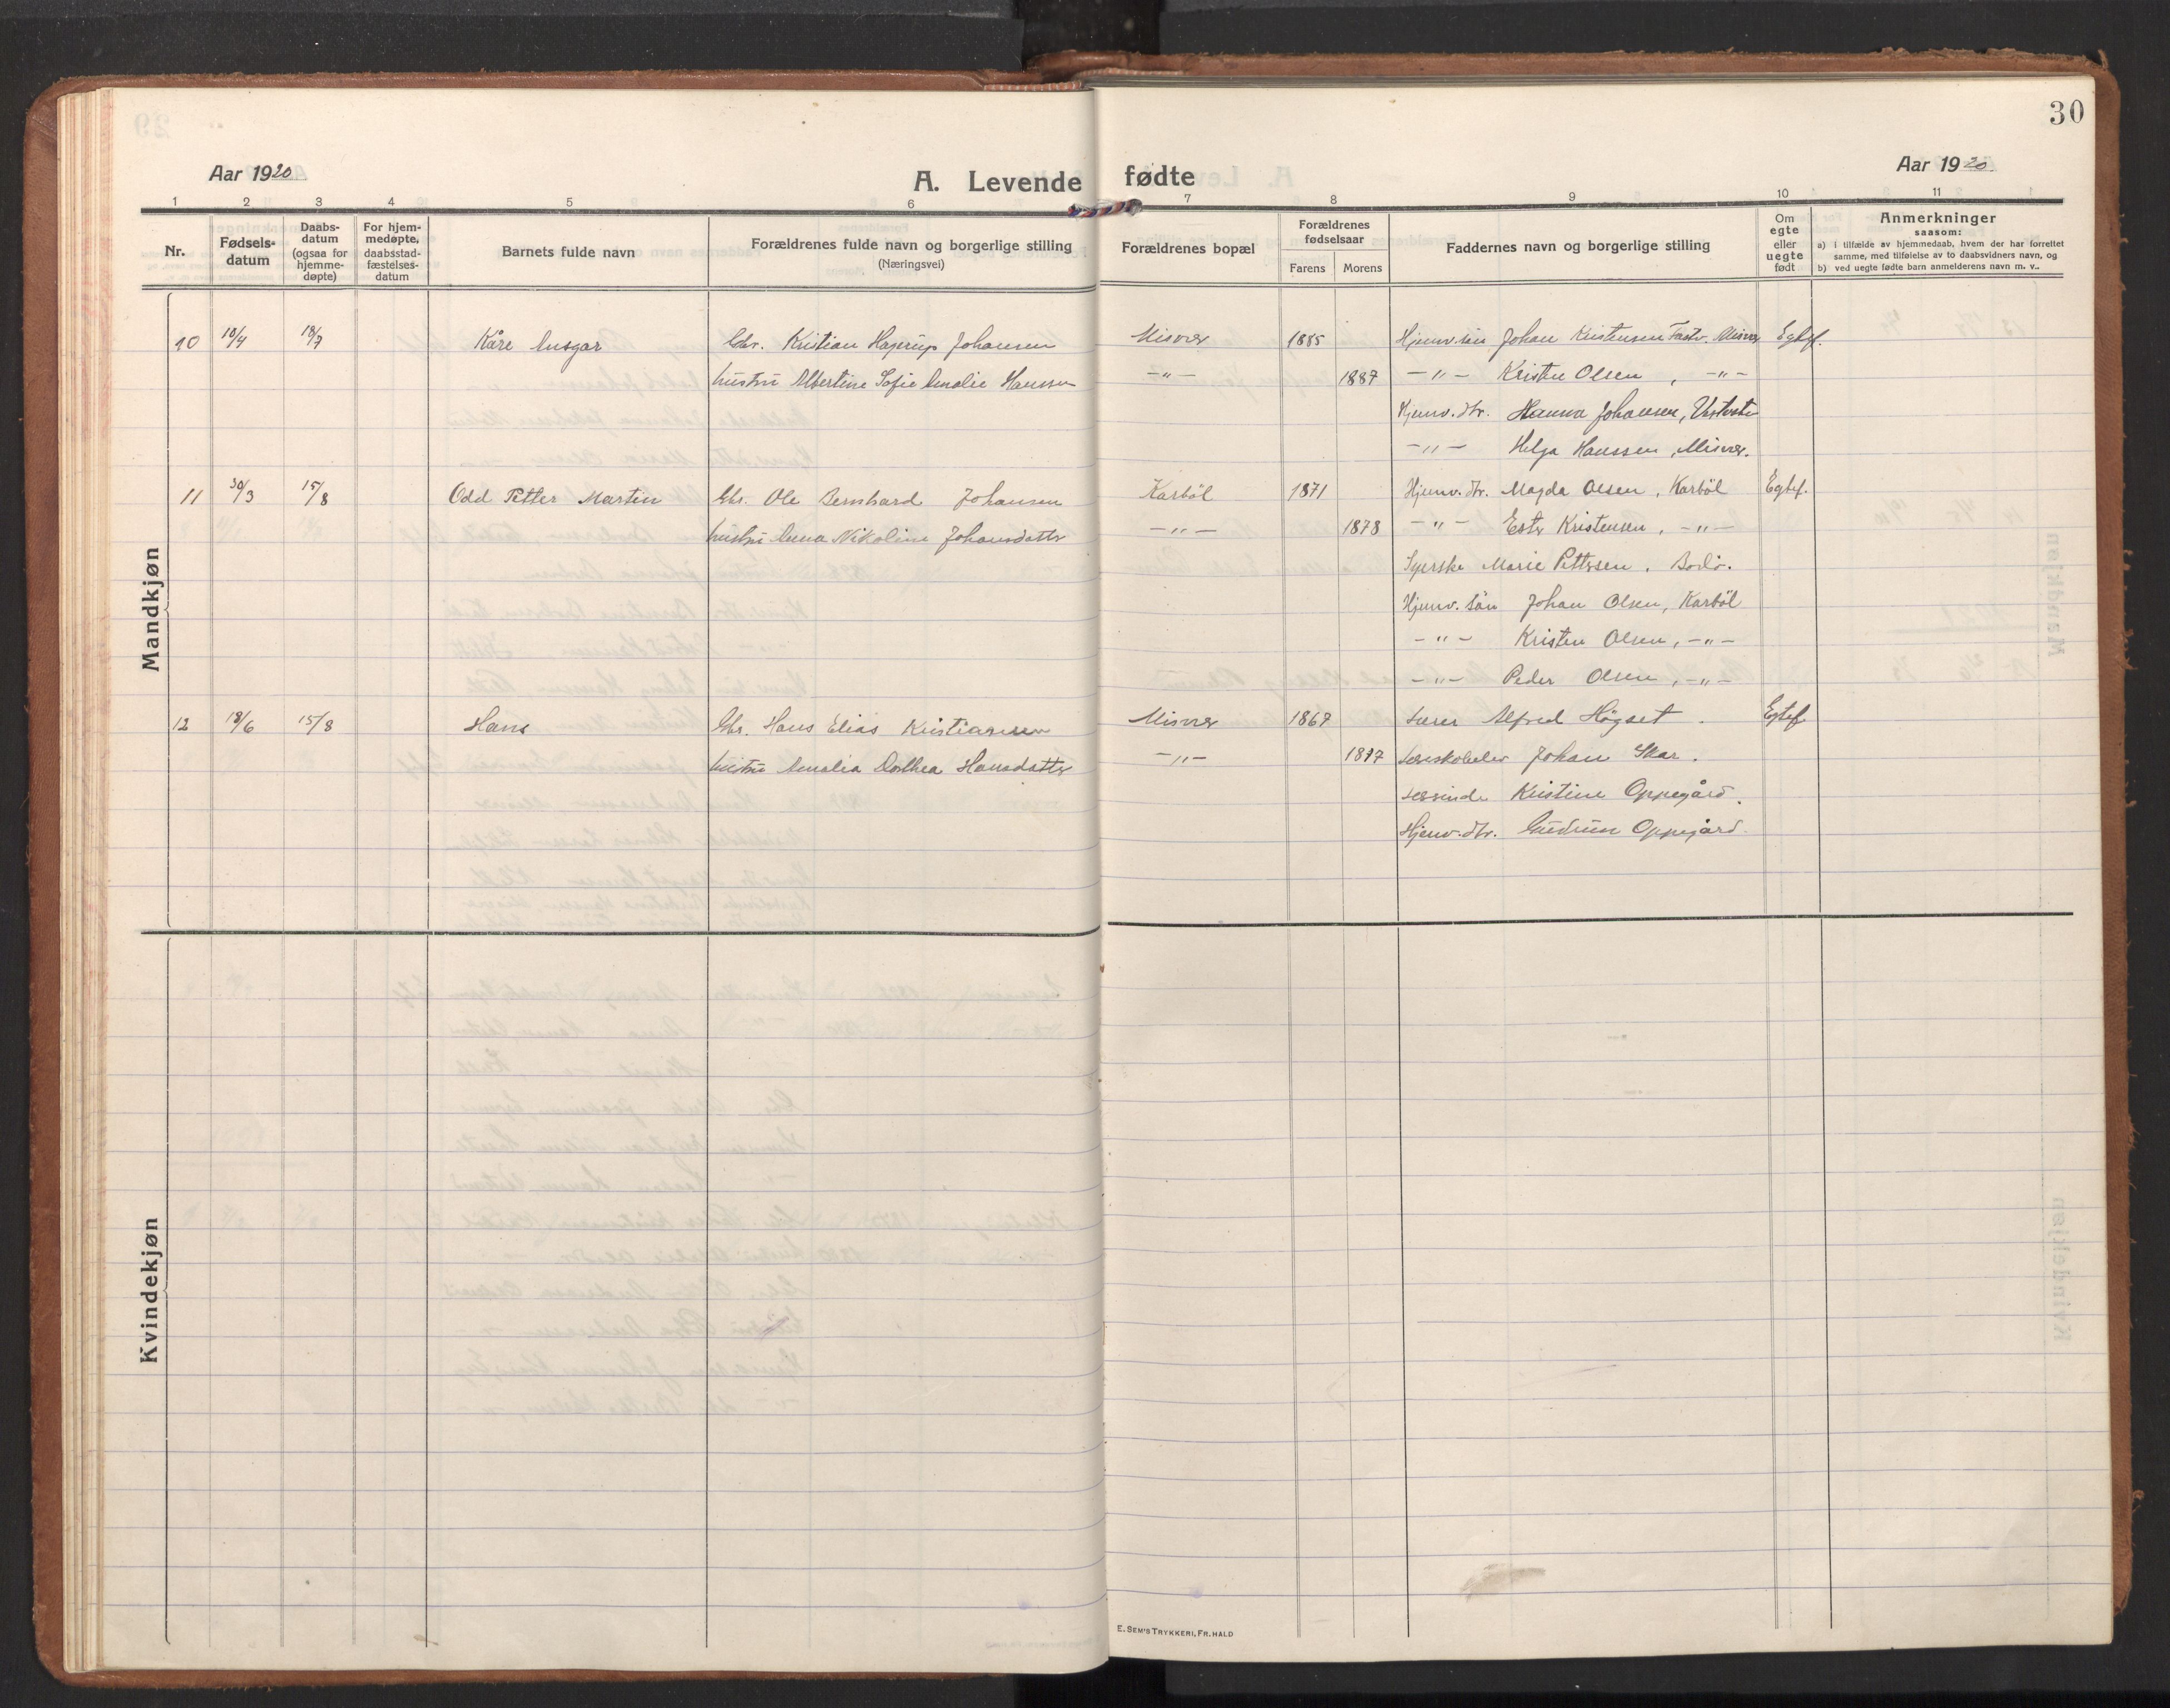 30
Aar 1920
A. Levende fødte
Aar 1920
1 2 3 4 5 6 7 8 9 10 11
Nr.
Fødsels-
datum
Daabs-
datum
(ogsaa for
hjemme-
døpte)
For hjem-
medøpte,
daabsstad-
fæstelses-
datum
Barnets fulde navn
Forældrenes fulde navn og borgerlige stilling
(Næringsvei)
Forældrenes bopæl
Forældrenes
fødselsaar
Farens Morens
Faddernes navn og borgerlige stilling
Om
egte
eller
uegte
født
Anmerkninger
saasom:
a) i tilfælde av hjemmedaab, hvem der har forrettet
samme, med tilføielse av to daabsvidners navn, og
b) ved uegte fødte barn anmelderens navn m. v..
Mandkjøn
10 18/7 Kåre Ansgar Gbr. Kristian Hagerup Johansen Misvær 1885 Johan Kristensen Misvær Egtef.
hustru Albertine Sofie Amalie Hanssen -"- 1887 -"- Kristen Olsen, -"-
Hjemv. dtr. Hanna Johansen,
-"- Helga Hanssen, Misvær.
11 30/3 15/8 Odd Petter Martin Gbr. Ole Bernhard Johansen Karbøl 1871 Hjemv. dtr. Magda Olsen, Karbøl Egtef.
hustru Anna Nikoline Johansdatter -"- 1878 -"- Ester Kristensen, -"-
Syerske Marie Pettersen, Bodø.
Hjemv. søn Johan Olsen, Karbøl
-"- Kristen Olsen, -"-
-"- Peder Olsen, -"-
12 18/6 15/8 Hans Gbr. Hans Elias Kristiansen Misvær 1867 Lærer Alfred Høgset. Egtef.
hustru Amalia Dorthea Hansdatter -"- 1877 Læreskoleelev Johan Skar.
Lærerinde Kristine Oppegård.
Hjemv. dtr. Gudrun Oppegård.
Kvindekjøn
E. SEM'S TRYKKERI, FR. HALD